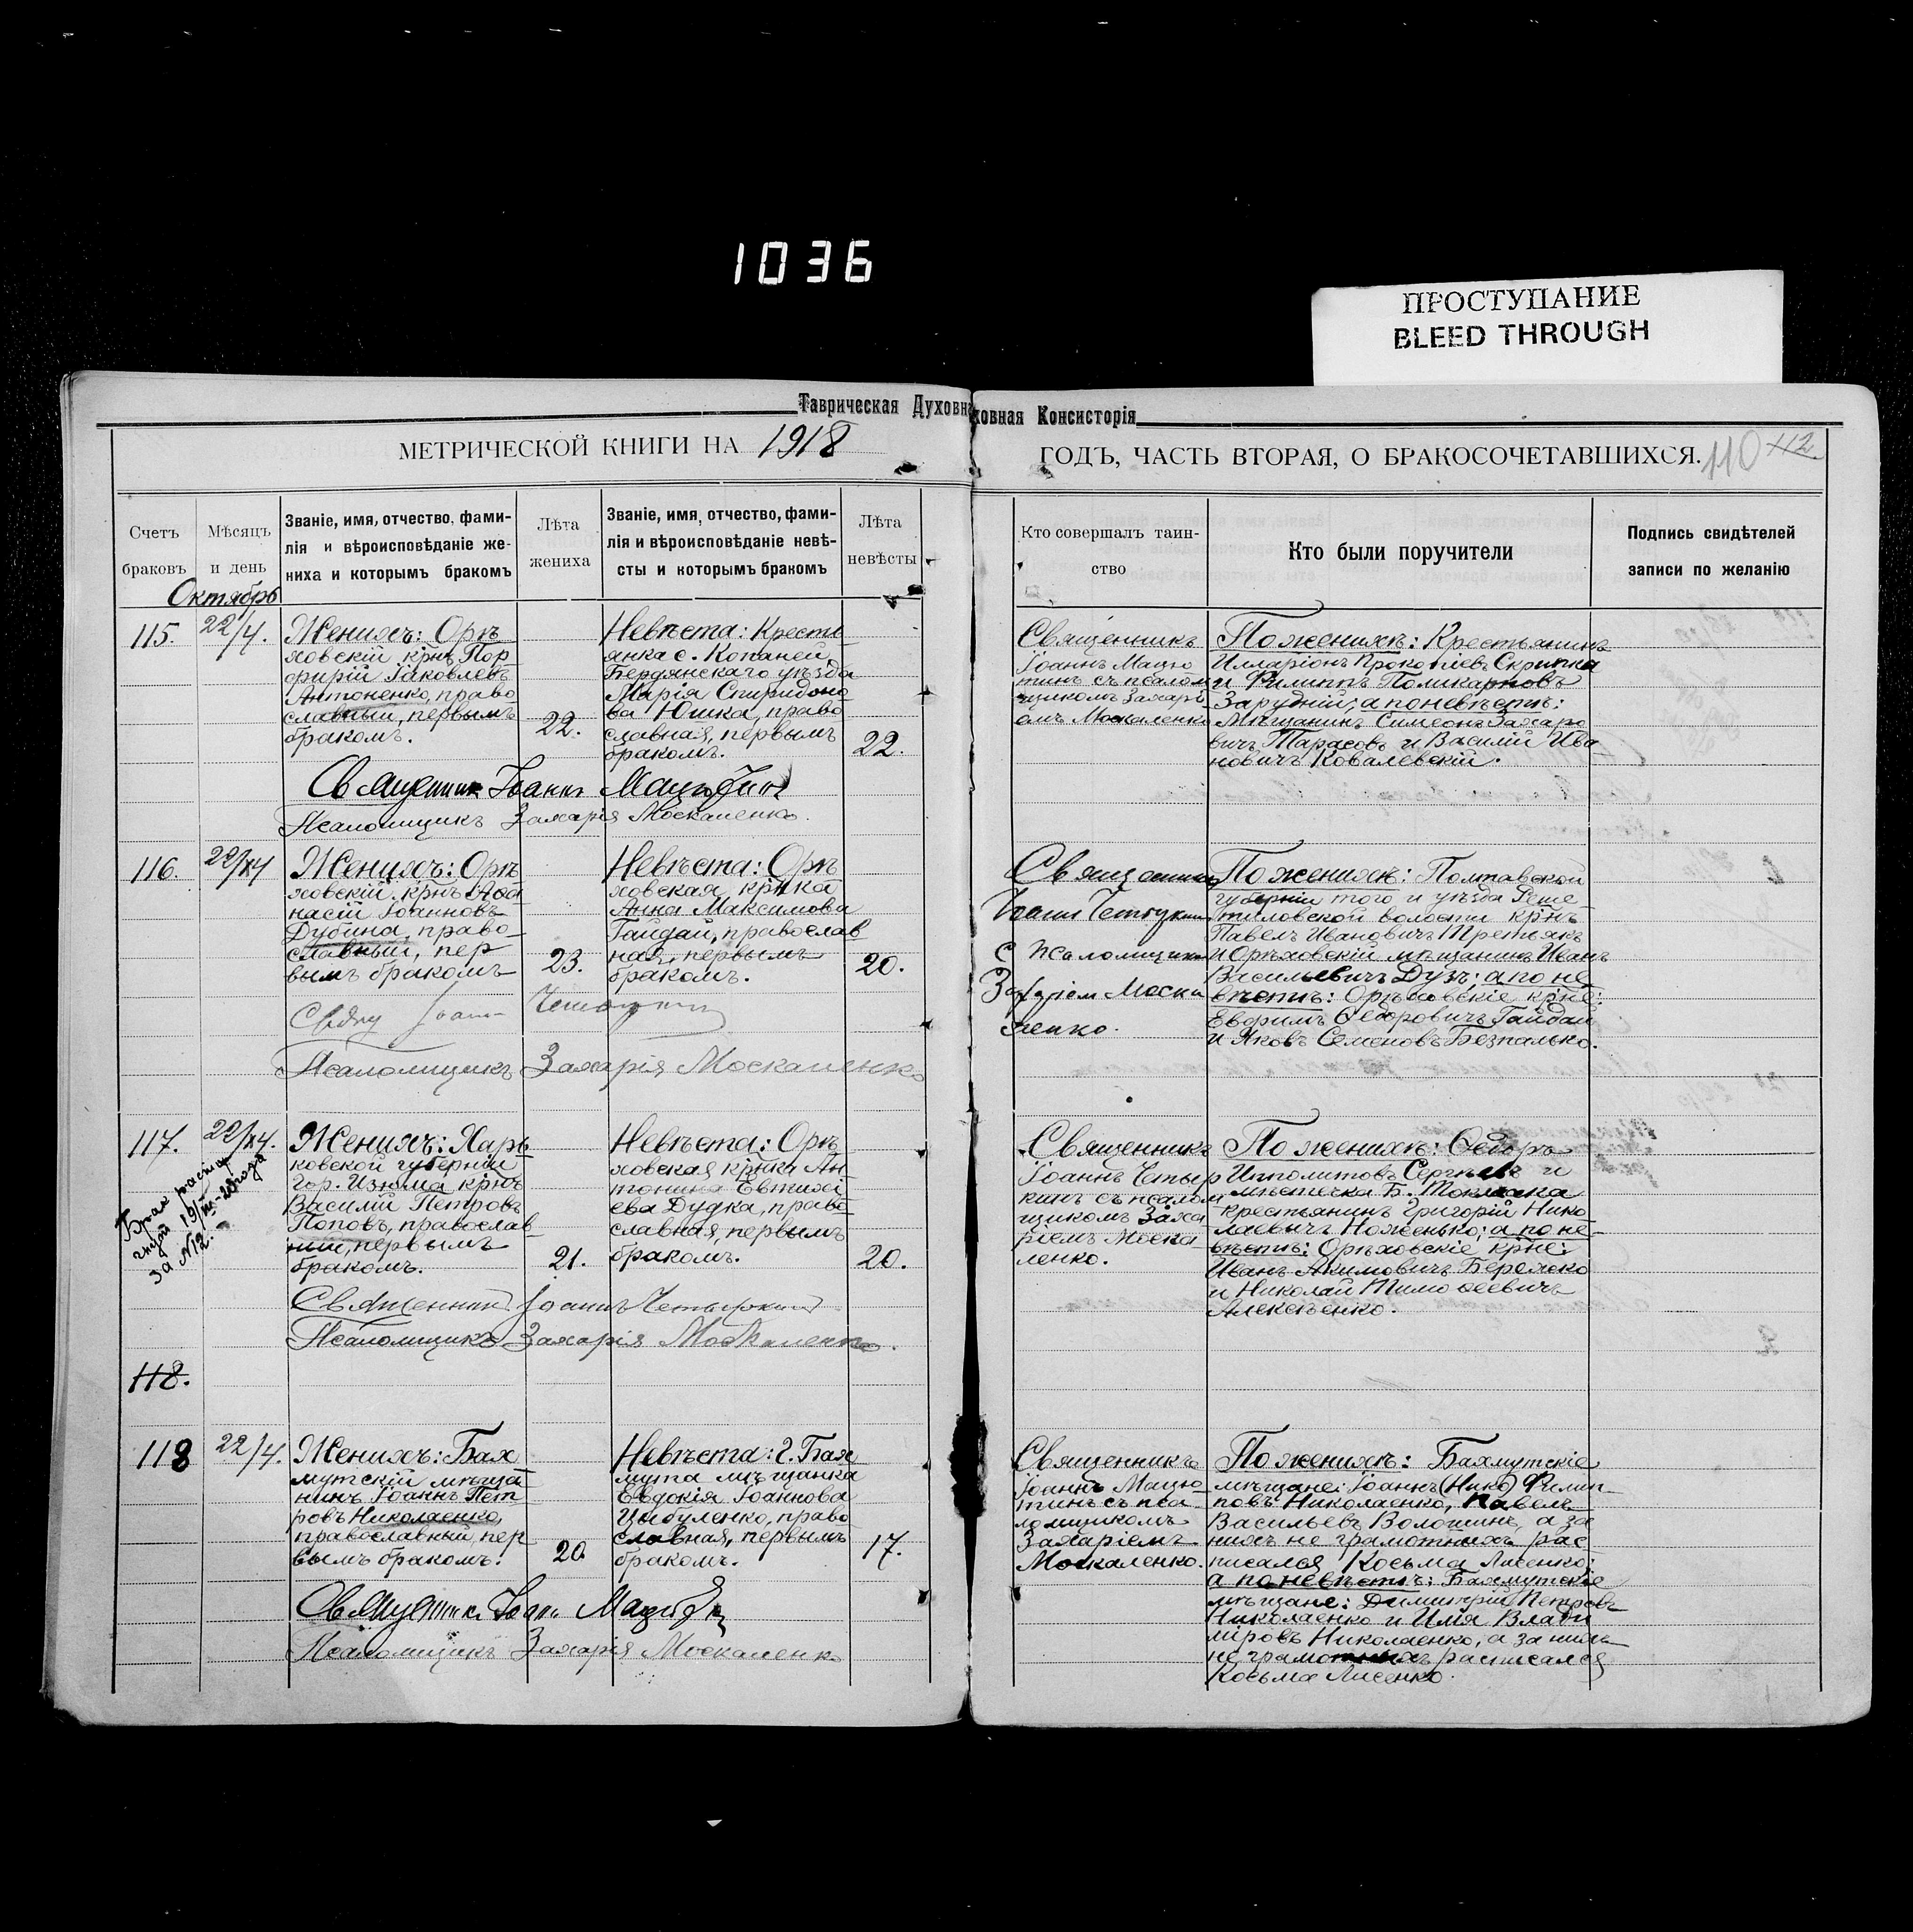 1036
ПРОСТУПАНИЕ
BLEED THROUGH
Таврическая Духовн
ховная Консисторія
МЕТРИЧЕСКОЙ КНИГИ НА 1918
ГОДЪ, ЧАСТЬ ВТОРАЯ, О БРАКОСОЧЕТАВШИХСЯ.
110 112
Счетъ
браковъ
Мѣсяцъ
и день
Званіе, имя, отчество, фами-
лія и вѣроисповѣданіе же-
ниха и которымъ бракомъ
Лѣта
жениха
Званіе, имя, отчество, фами-
лія и вѣроисповѣданіе невѣ-
сты и которымъ бракомъ
Лѣта
невѣсты
Кто совершалъ таин-
ство
Кто были поручители
Подпись свидѣтелей
записи по желанію
Октябрь
115.
22/4.
Женихъ: Орѣ
ховскій крнъ Пор
фирій Іаковлевъ
Антоненко, право
славный, первымъ
бракомъ.
22.
Невѣста: Кресть
янка с. Копаней
Бердянскаго уѣзда
Марія Спиридоно
ва Юшка, право
славная, первымъ
бракомъ.
22.
Священникъ
Іоаннъ Мацю
тинъ съ псалом
щикомъ Захарі
емъ Москаленко
По женихѣ: Крестьянинъ
Илларіонъ Прокопіевъ Скрипка
и Филиппъ Поликарповъ
Зарудній; а по невѣстѣ:
Мѣщанинъ Симеонъ Захаро
вичъ Тарасовъ и Василій Ива
новичъ Ковалевскій.
Священникъ Іоаннъ Мацютинъ
Псаломщикъ Захарія Москаленко.
116.
22/4
Женихъ: Орѣ
ховскій крнъ Аѳа
насій Іоанновъ
Дубина, право
славный, пер
вымъ бракомъ
23.
Невѣста: Орѣ
ховская крнка
Анна Максимова
Гайдай, православ
ная, первымъ
бракомъ.
20.
Священникъ
Іоаннъ Четыркинъ
с псаломщиком
Захаріем Моска
ленко.
По женихѣ: Полтавской
губерніи того и уѣзда Реше
тиловской волости крнъ
Павелъ Ивановичъ Третьякъ
и Орѣховскій мѣщанинъ Иванъ
Васильевичъ Дузь; а по не
вѣстѣ: Орѣховскіе крне:
Евфимъ Ѳедоровичъ Гайдай
и Яковъ Семеновъ Безпалько.
Іоанн Четыркин
Псаломщикъ Захарія Москаленко
117.
22/4.
Брак расторг
нут 19/III-28 года
за N12.
Женихъ: Харь
ковской губерніи
гор. Изюма крнъ
Василій Петровъ
Поповъ, православ
ный, первымъ
бракомъ.
21.
Невѣста: Орѣ
ховская крнка Ан
тонина Евтихі
ева Дудка, право
славная, первымъ
бракомъ.
20.
Священникъ
Іоаннъ Четыр
кинъ съ псалом
щикомъ Заха
ріемъ Моска
ленко.
По женихѣ: Ѳедоръ
Ипполитовъ Сергѣевъ и
мѣстечка Б. Токмака
крестьянинъ Григорій Нико
лаевичъ Ноженько; а по не
вѣстѣ: Орѣховскіе крне:
Иванъ Акимовичъ Бережко
и Николай Тимоѳеевичъ
Алексѣенко.
Священникъ Іоаннъ Четыркинъ
Псаломщикъ Захарія Москаленко.
118.
118
22/4.
Женихъ: Бах
мутскій мѣща
нинъ Іоаннъ Пет
ровъ Николаенко,
православный, пер
вымъ бракомъ.
20
Невѣста: г. Бах
мута мѣщанка
Евдокія Іоаннова
Цыбуленко, право
славная, первымъ
бракомъ.
17.
Священникъ
Іоаннъ Мацю
тинъ съ пса
ломщикомъ
Захаріемъ
Москаленко.
По женихѣ: Бахмутскіе
мѣщане: Іоаннъ (Нико) Филип
повъ Николаенко, Павелъ
Васильевъ Волошинъ, а за
нихъ не грамотныхъ рас
писался Косьма Лисенко;
а по невѣстѣ: Бахмутскіе
мѣщане: Димитрій Петровъ
Николаенко и Илья Влади
міровъ Николаенко, а за нихъ
не грамотныхъ расписался
Косьма Лисенко.
Священникъ Іоаннъ Мацютинъ
Псаломщикъ Захарія Москаленко